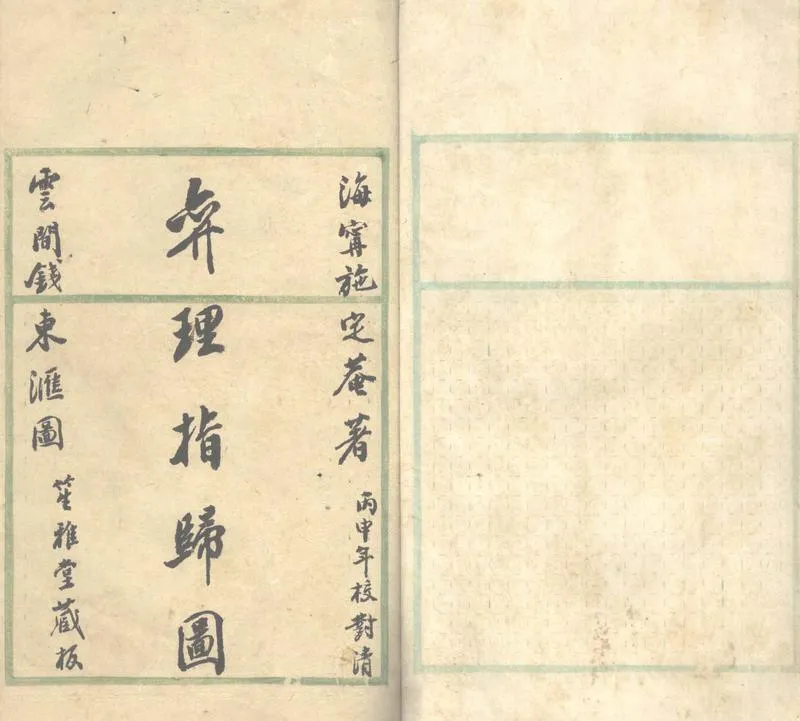 海寗施定菴著
丙申年校對清
弈理指歸圖
雲間錢東滙圖
笙雅堂藏板